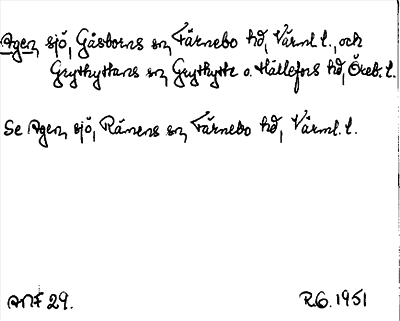 Agen, sjö, Gåsborns sn, Färnebo hd, Värml. l., och
Grythyttans sn, Grythytte o. Hällefors hd, Öreb. l.
Se Agen, sjö, Rämens sn, Färnebo hd, Värml. l.
ANF 29.
R.G. 1951